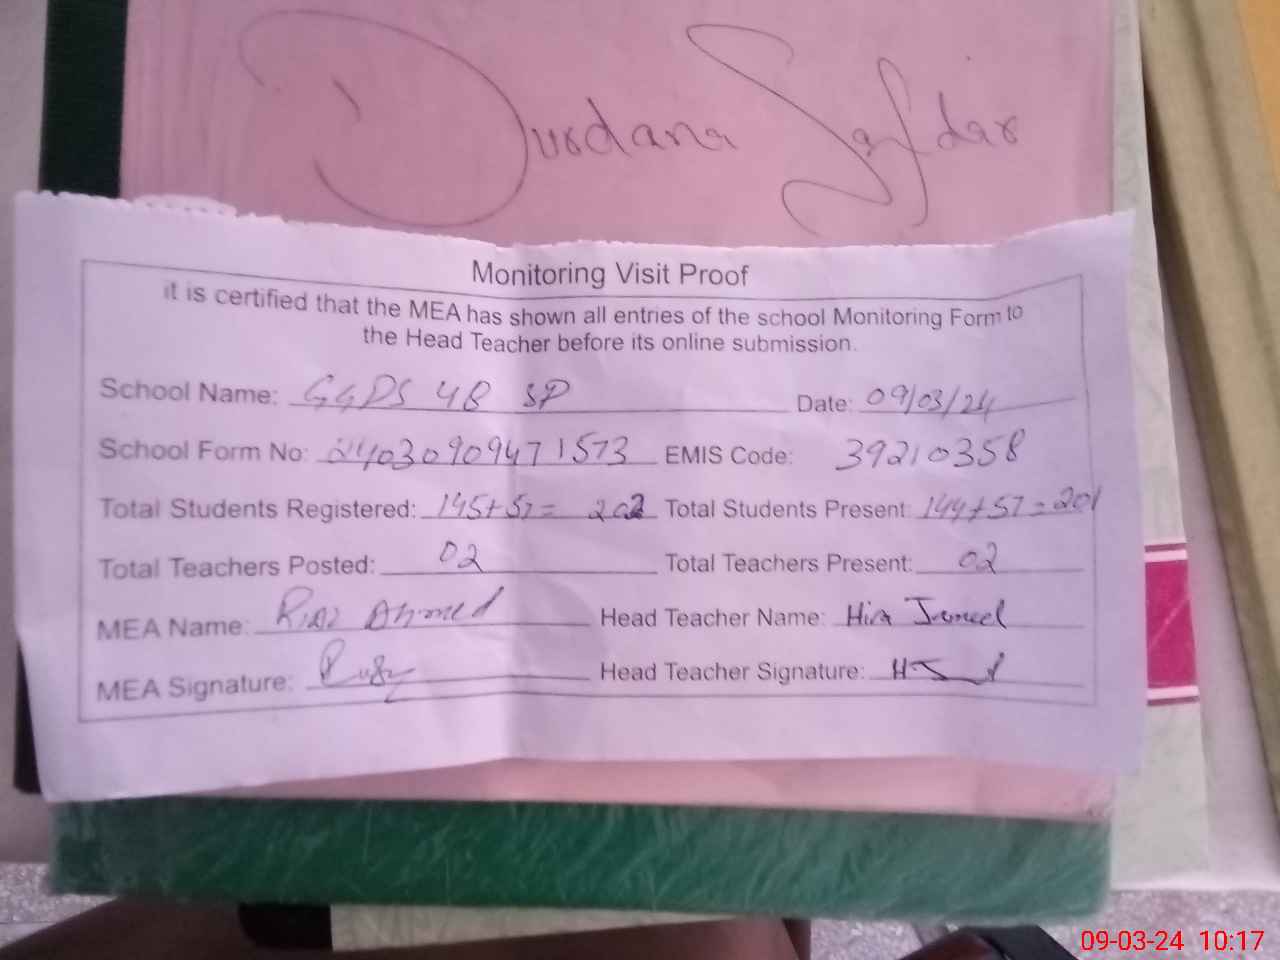 Durdana Safdar
Monitoring Visit Proof
it is certified that the MEA has shown all entries of the school Monitoring Form to
the Head Teacher before its online submission.
School Name: GGPS 4B SP Date: 09/03/24
School Form No: 24030909471573 EMIS Code: 39210358
Total Students Registered: 145+57= 202 Total Students Present: 144+57=201
Total Teachers Posted: 02 Total Teachers Present: 02
MEA Name: Riaz Ahmed Head Teacher Name: Hira Jameel
MEA Signature: Head Teacher Signature:
09-03-24 10:17